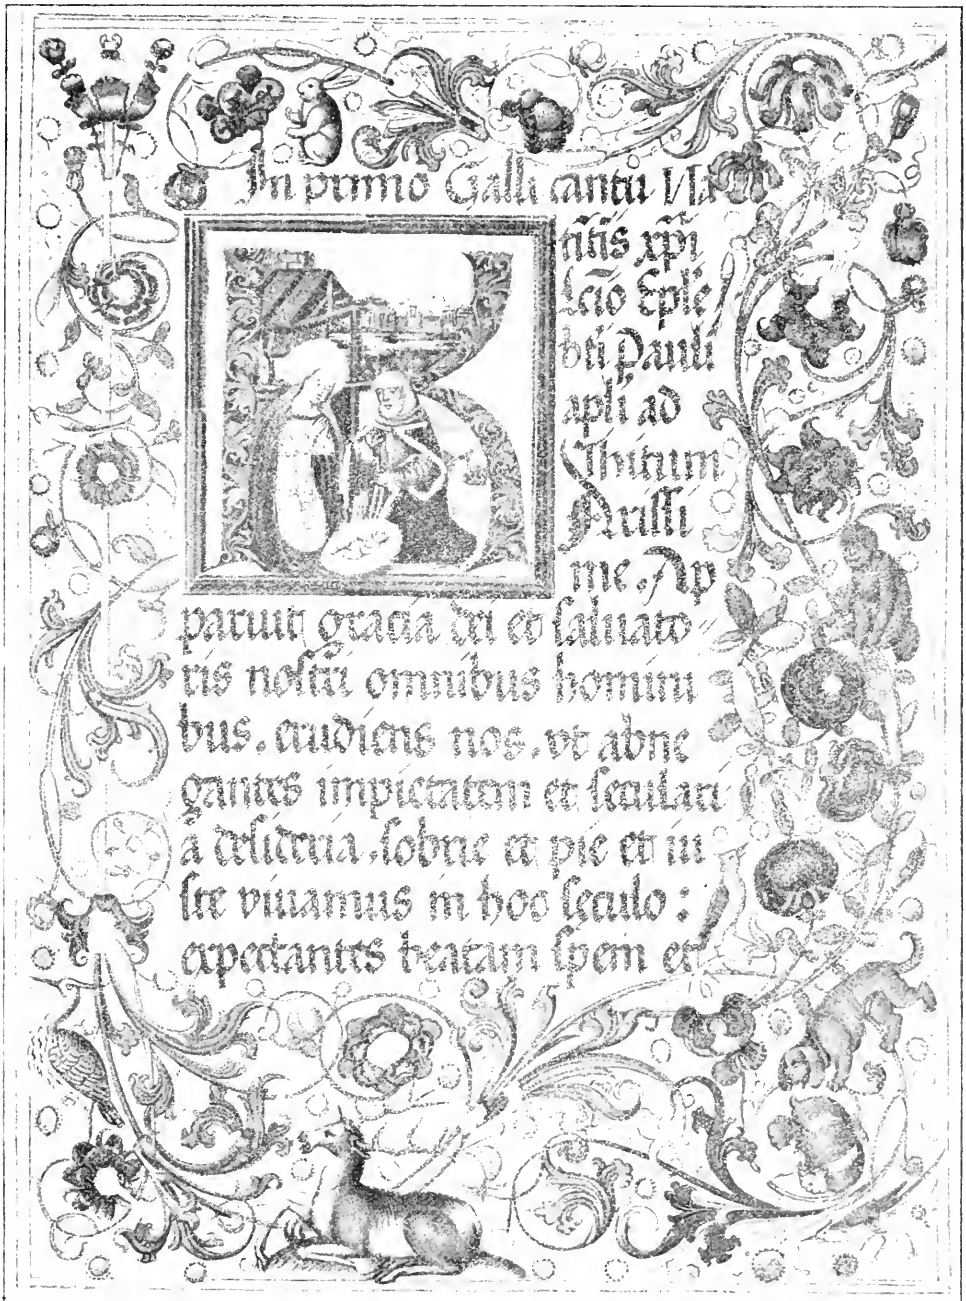 In primo Galli cantu Na
titis xpi
Lcio Eple
bti Pauli
apli ad
Thitum
krissi
me. Ap
paruit gracia dei et saluato
ris nostri omnibus homini
bus. erudiens nos. vt abne
gantes impietatem et seculari
a desideria. sobrie et pie et iu
ste viuamus in hoc seculo :
expectantes beatam spem et